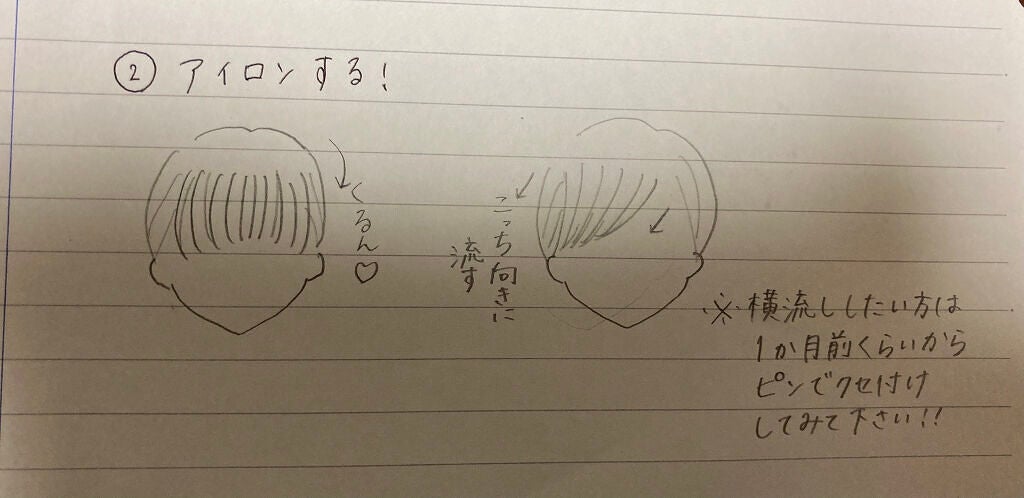 ② アイロンする!
くるん♡
こっち向きに
流す
※横流ししたい方は
1か月前くらいから
ピンでクセ付け
してみて下さい!!